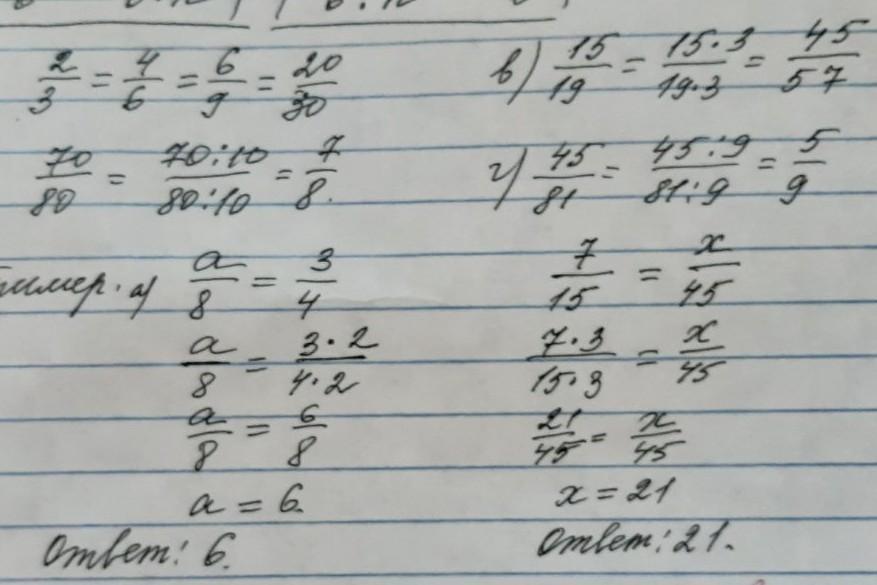 2/3 = 4/6 = 6/9 = 20/30
в) 15/19 = 15·3/19·3 = 45/57
70/80 = 70:10/80:10 = 7/8.
г) 45/81 = 45:9/81:9 = 5/9
имер. а) a/8 = 3/4
a/8 = 3·2/4·2
a/8 = 6/8
a = 6.
Ответ: 6.
7/15 = x/45
7·3/15·3 = x/45
21/45 = x/45
x = 21
Ответ: 21.